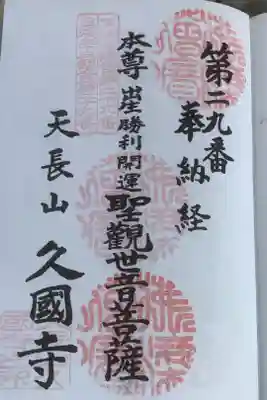 第二九番
奉納経
本尊 出世勝利開運 聖觀世音菩薩
天長山 久國寺